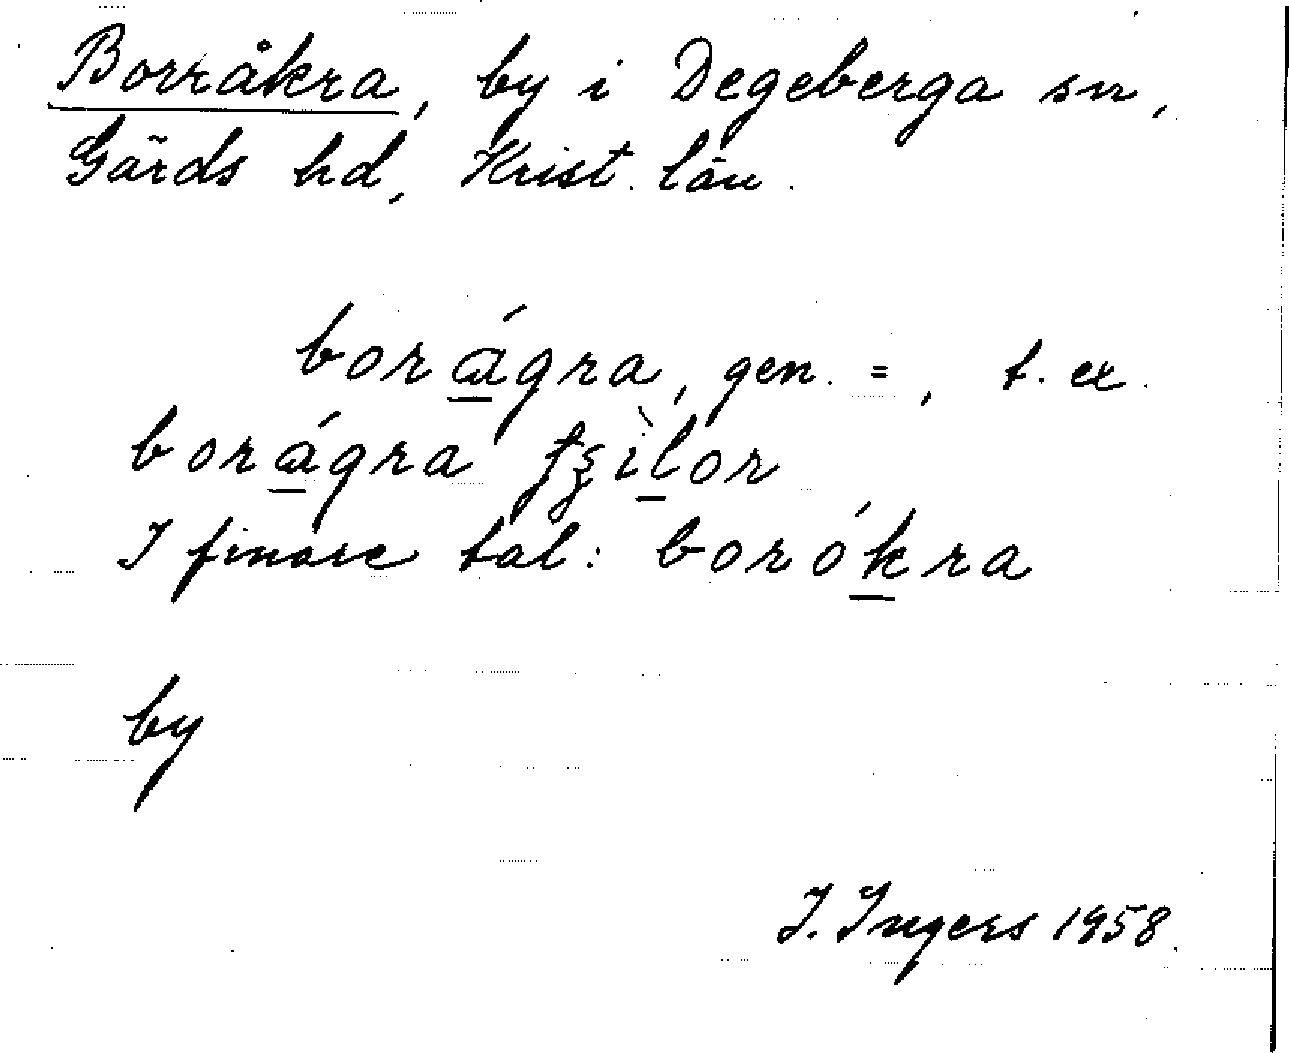 Borråkra, by i Degeberga sn,
Gärds hd, Krist. län.
borágra, gen. =, t. ex.
borágra tʂìlor
I finare tal: borókra
by
I. Ingers 1958.